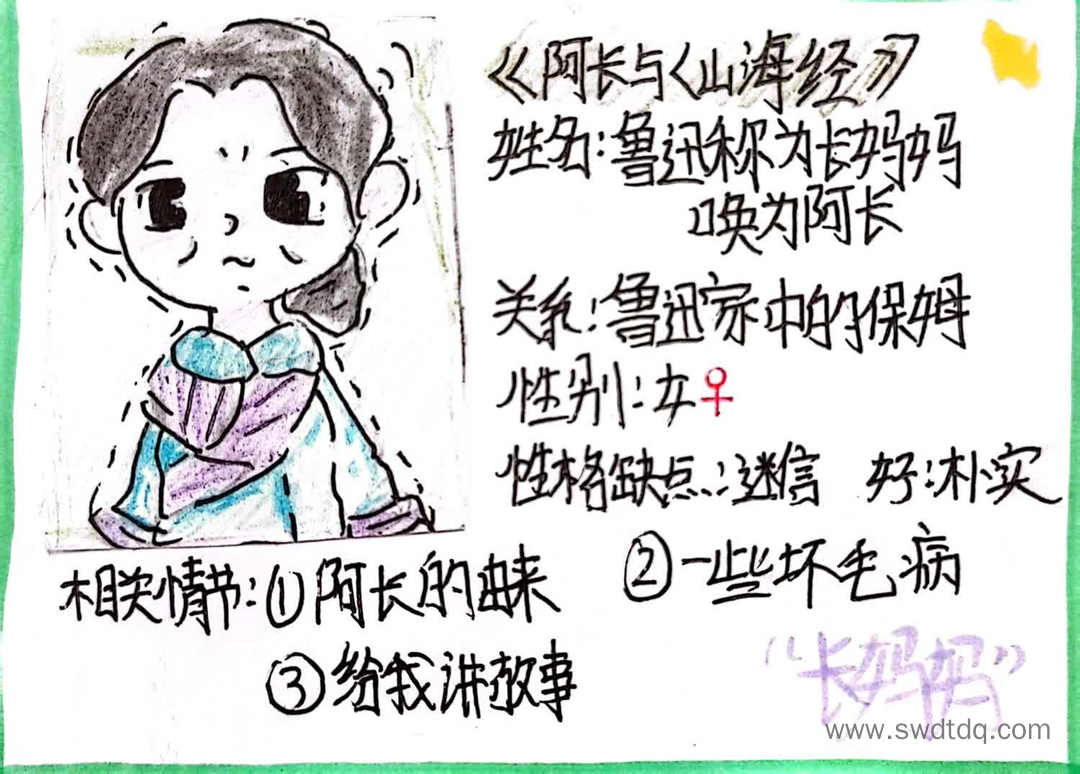 《阿长与〈山海经》
姓名:鲁迅称为长妈妈
唤为阿长
关系:鲁迅家中的保姆
性别:女♀
性格缺点:迷信 好:朴实
相关情节:①阿长的由来
②一些坏毛病
③给我讲故事
“长妈妈”
www.swdtdq.com